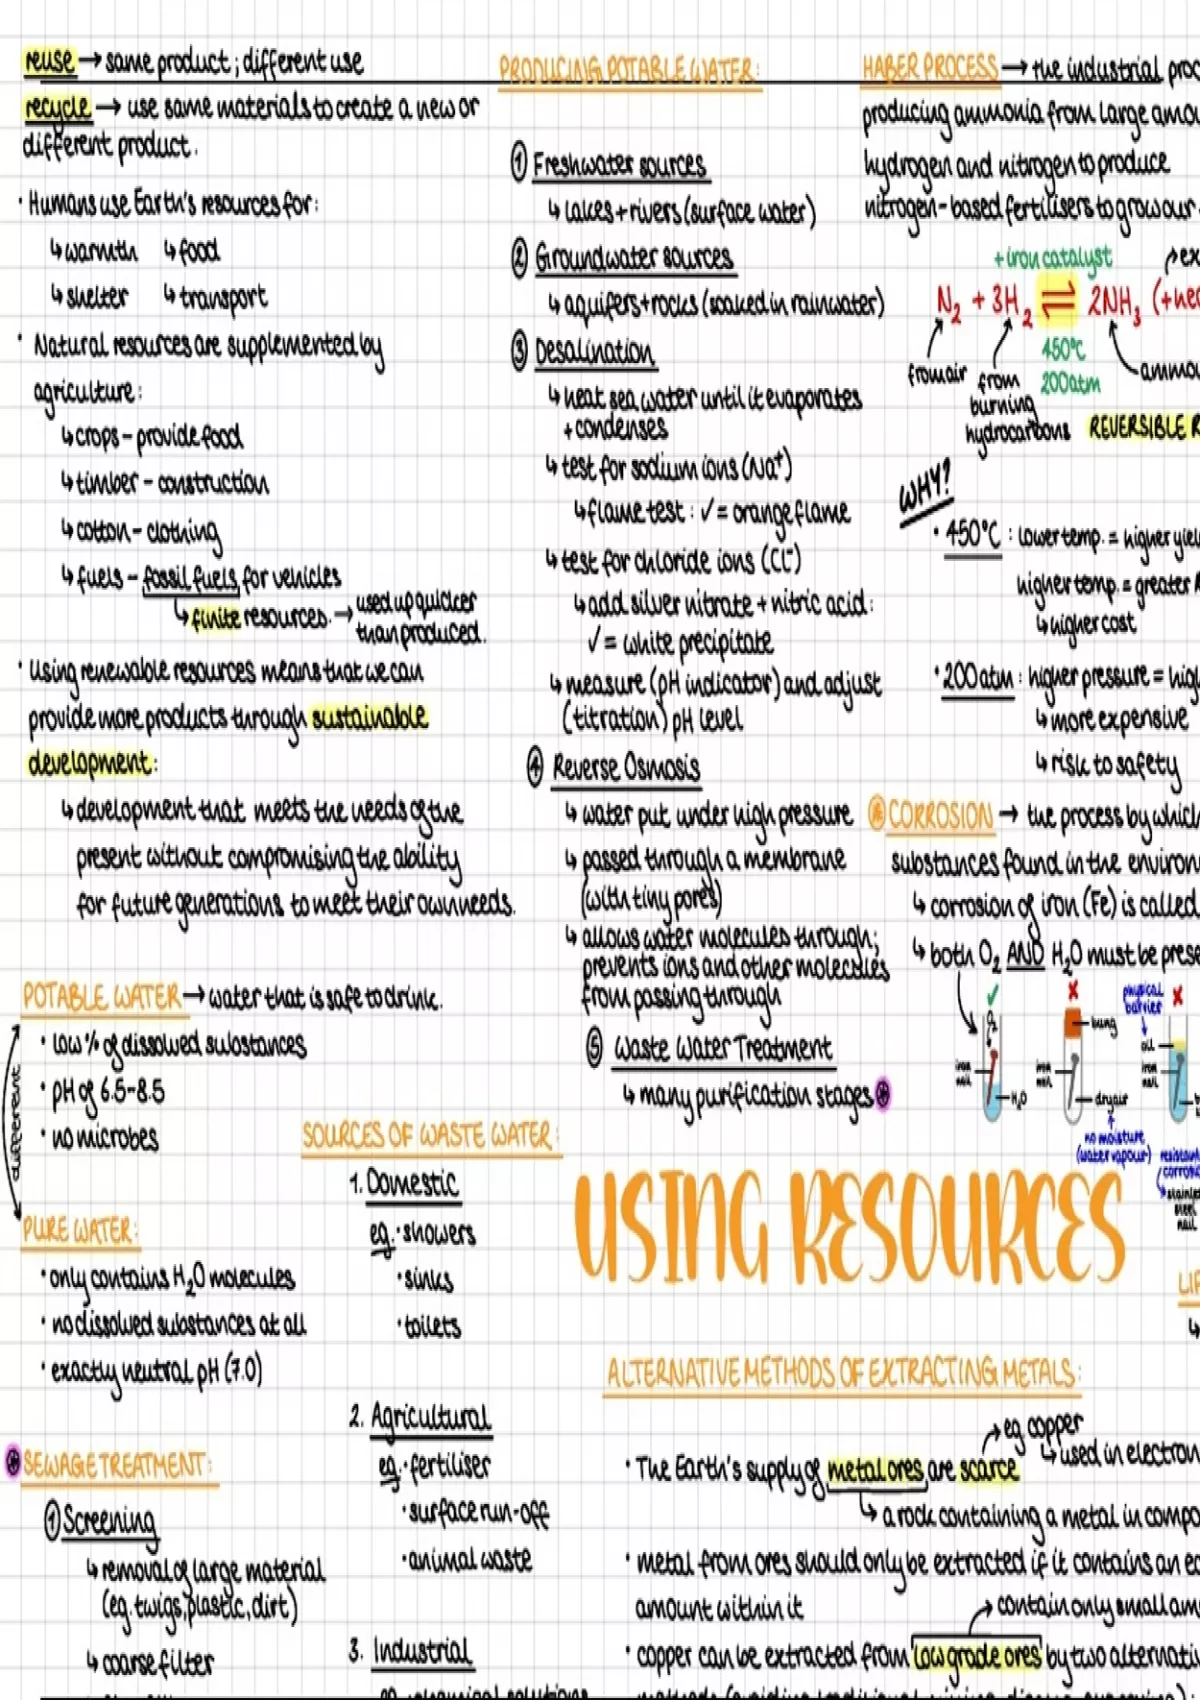 reuse → same product ; different use
recycle → use same materials to create a new or
different product.
· Humans use Earth's resources for:
↳ warmth ↳ food
↳ shelter ↳ transport
· Natural resources are supplemented by
agriculture:
↳ crops - provide food
↳ timber - construction
↳ cotton - clothing
↳ fuels - fossil fuels for vehicles
↳ finite resources. → used up quicker
than produced.
· Using renewable resources means that we can
provide more products through sustainable
development:
↳ development that meets the needs of the
present without compromising the ability
for future generations to meet their own needs.
POTABLE WATER → water that is safe to drink.
· low % of dissolved substances
· pH of 6.5-8.5
· no microbes
different
PURE WATER:
· only contains H₂O molecules
· no dissolved substances at all
· exactly neutral pH (7.0)
SEWAGE TREATMENT:
① Screening
↳ removal of large material
(eg. twigs, plastic, dirt)
↳ coarse filter
SOURCES OF WASTE WATER:
1. Domestic
eg. · showers
· sinks
· toilets
2. Agricultural
eg. · fertiliser
· surface run-off
· animal waste
3. Industrial
PRODUCING POTABLE WATER:
① Freshwater sources
↳ lakes + rivers (surface water)
② Groundwater sources
↳ aquifers + rocks (soaked in rainwater)
③ Desalination
↳ heat sea water until it evaporates
+ condenses
↳ test for sodium ions (Na⁺)
↳ flame test : ✓ = orange flame
↳ test for chloride ions (Cl⁻)
↳ add silver nitrate + nitric acid :
✓ = white precipitate
↳ measure (pH indicator) and adjust
(titration) pH level
④ Reverse Osmosis
↳ water put under high pressure
↳ passed through a membrane
(with tiny pores)
↳ allows water molecules through;
prevents ions and other molecules
from passing through
⑤ Waste Water Treatment
↳ many purification stages
HABER PROCESS → the industrial proc
producing ammonia from large amou
hydrogen and nitrogen to produce
nitrogen-based fertilisers to grow our
+ iron catalyst ex
N₂ + 3H₂ ⇌ 2NH₃ (+ hea
450°C
200atm
from air
from
burning
hydrocarbons
ammo
REVERSIBLE R
WHY?
· 450°C : lower temp. = higher yiel
higher temp. = greater R
↳ higher cost
· 200atm : higher pressure = hig
↳ more expensive
↳ risk to safety
CORROSION → the process by which
substances found in the environ
↳ corrosion of iron (Fe) is called
↳ both O₂ AND H₂O must be prese
✓ ✗ physical
barrier ✗
O₂
bung
oil
iron
nail
iron
nail
iron
nail
H₂O
dry air
no moisture
(water vapour)
resistant
corrosi
stainles
steel
nail
USING RESOURCES
LIF
ALTERNATIVE METHODS OF EXTRACTING METALS:
→ eg copper
↳ used in electron
· The Earth's supply of metal ores are scarce
↳ a rock containing a metal in compo
· metal from ores should only be extracted if it contains an ec
amount within it
→ contain only small am
· copper can be extracted from low grade ores by two alternati